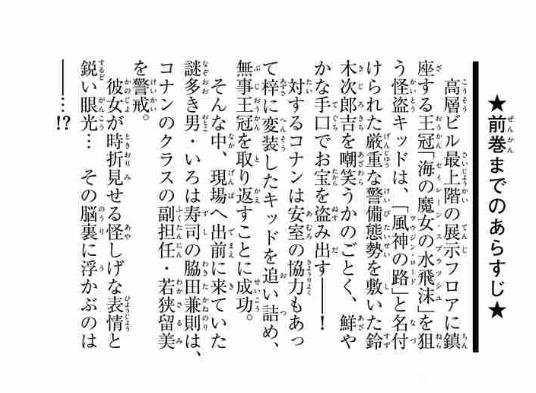 ★前巻までのあらすじ★
高層ビル最上階の展示フロアに鎮
座する王冠「海の魔女の水飛沫」を狙
う怪盗キッドは、「風神の路」と名付
けられた厳重な警備態勢を敷いた鈴
木次郎吉を嘲笑うかのごとく、鮮や
かな手口でお宝を盗み出す――!
対するコナンは安室の協力もあっ
て梓に変装したキッドを追い詰め、
無事王冠を取り返すことに成功。
そんな中、現場へ出前に来ていた
謎多き男・いろは寿司の脇田兼則は、
コナンのクラスの副担任・若狭留美
を警戒。
彼女が時折見せる怪しげな表情と
鋭い眼光… その脳裏に浮かぶのは
――…!?